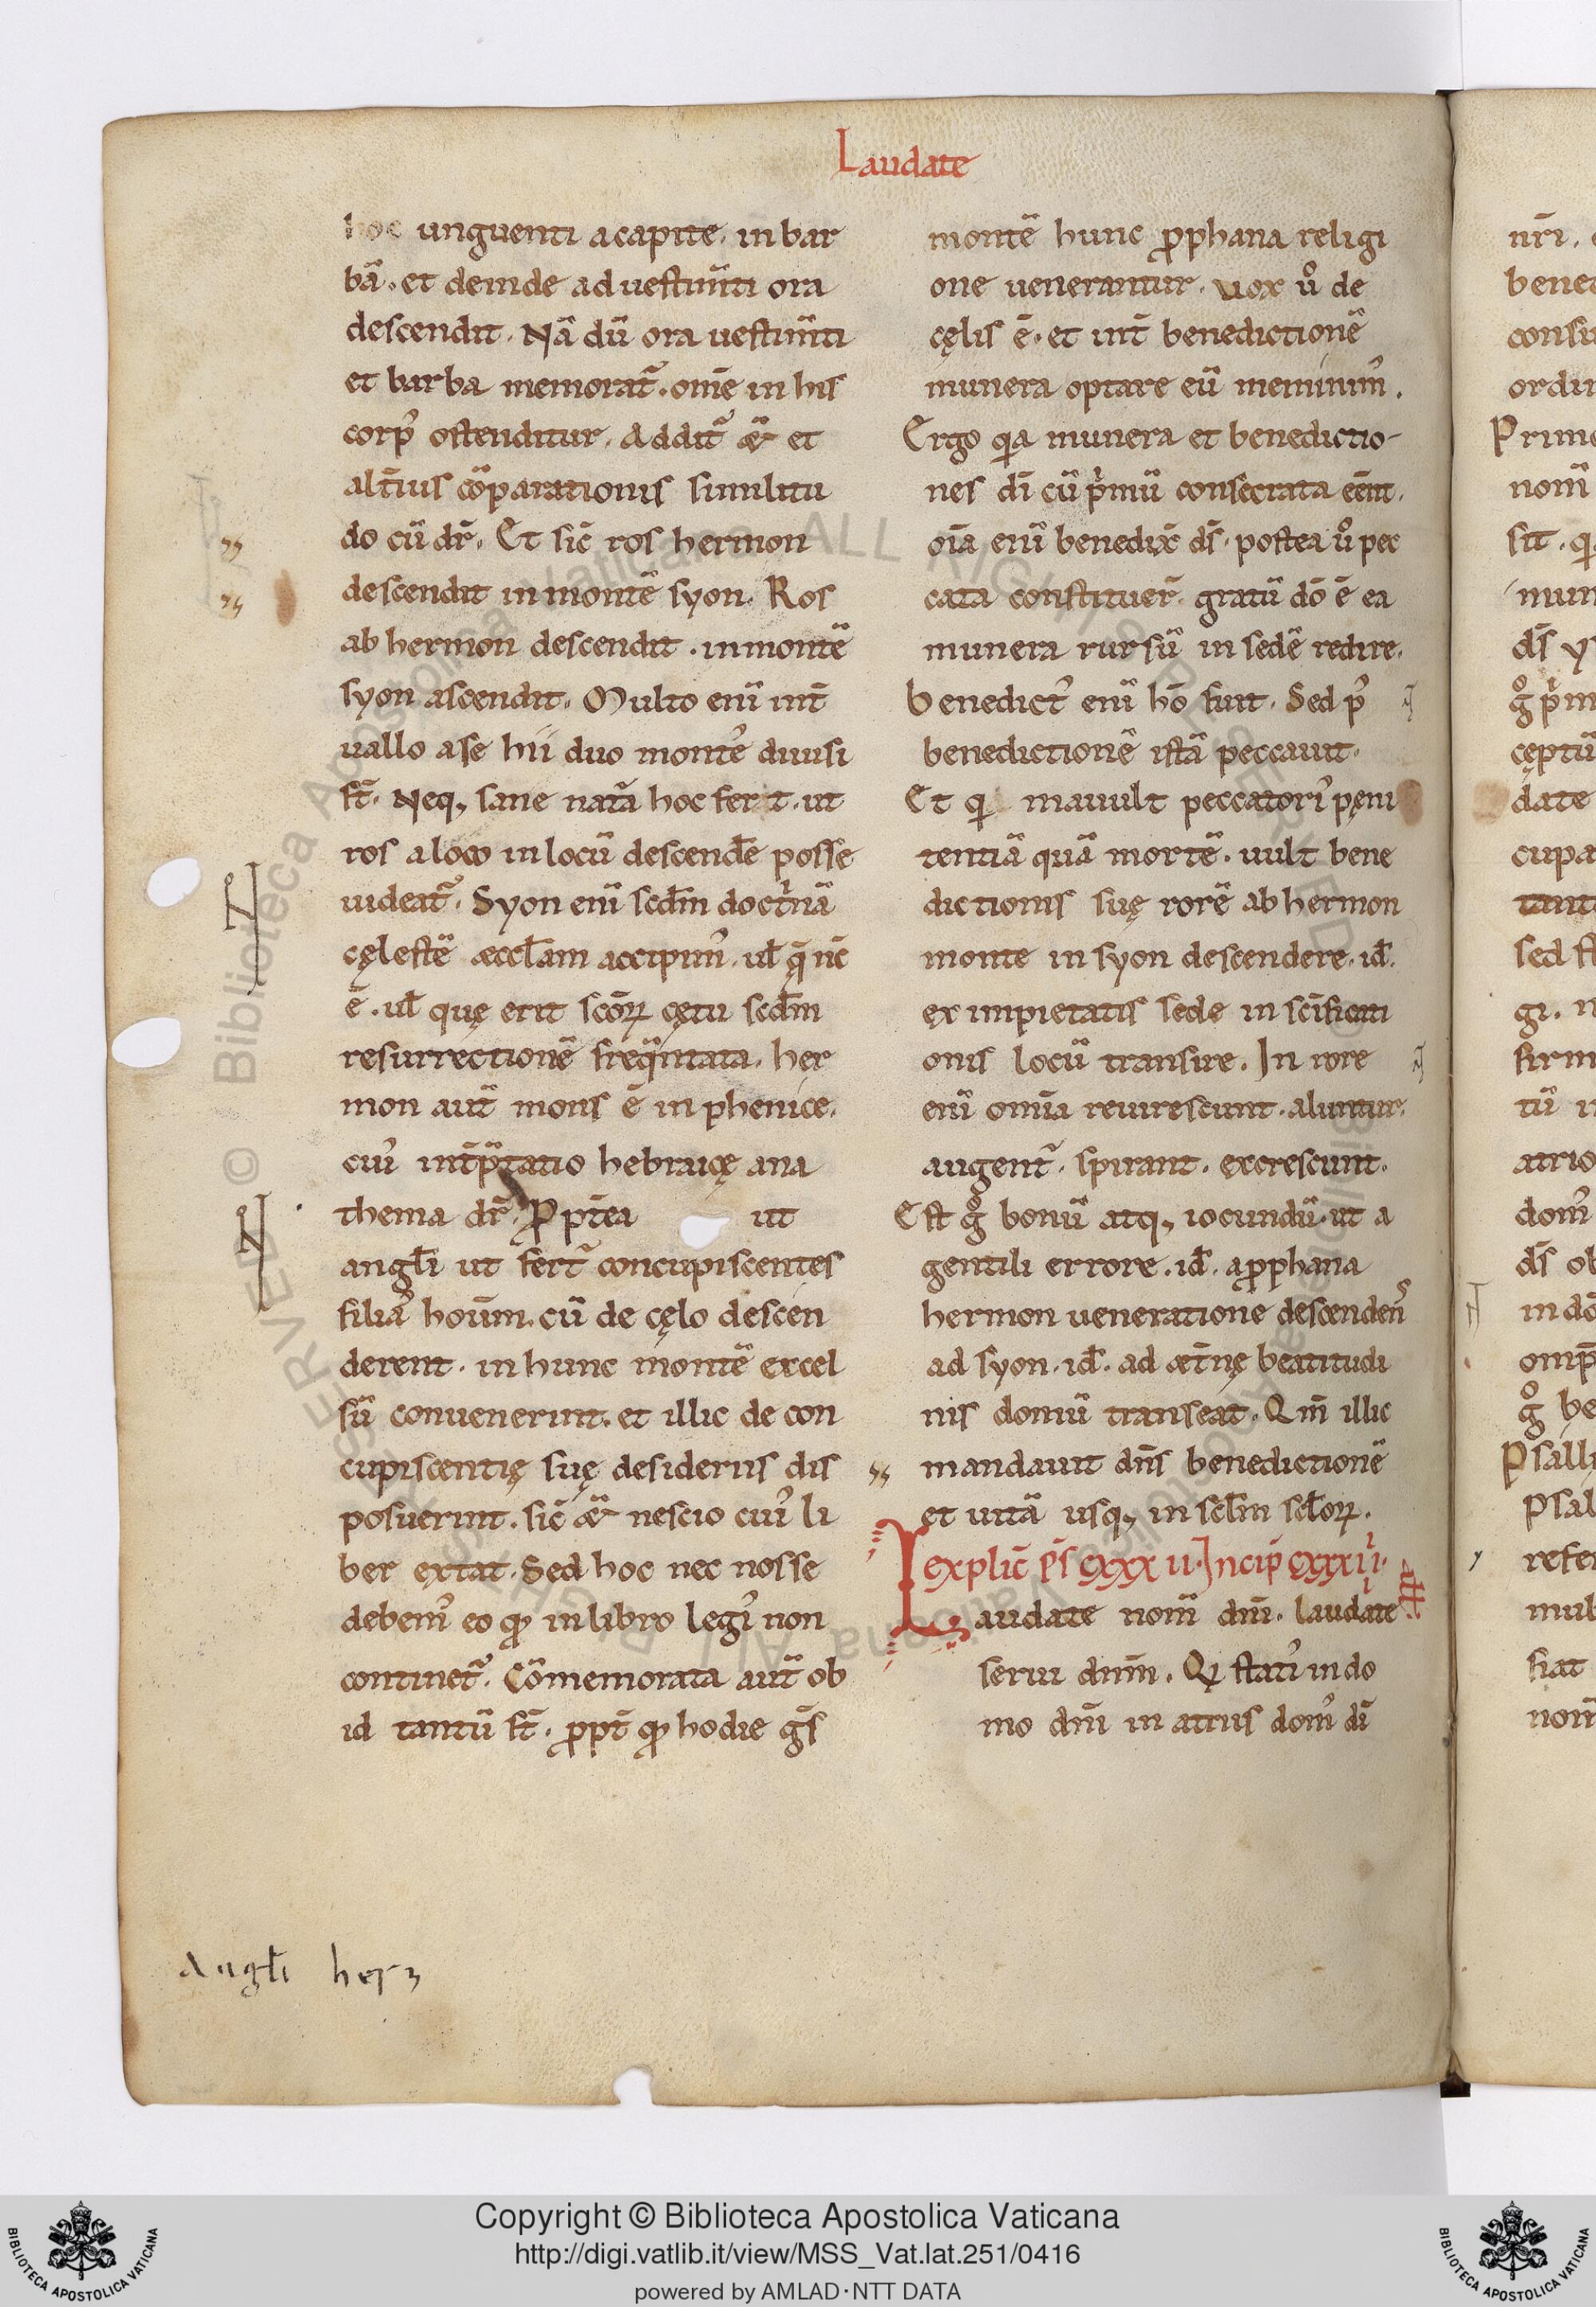 Laudate
hoc unguenti a capite. in bar
bā. et deinde ad uestim̄ti ora
descendit. Nā dū ora uestim̄ti
et barba memorat᷑. om̄e in his
corp᷒ ostenditur. Addit᷑ &̄ et
alt̄ius cōparationis similitu
do cū dr̄. Et sic̄ ros hermon
descendit in montē syon. Ros
ab hermon descendit. in montē
syon ascendit. Multo enī int̄
uallo a se hii duo mont᷒ diuisi
st̄. Neq; sane nat̄a hoc fert. ut
ros a loco in locū descendēe posse
uideat᷑. Syon enī scdm̄ doctⁱnā
cęlestē æccl̄am accipim᷒. ul̄ q̄ nc̄
ē. ul̄ quę erit scōꝝ cętu scdm̄
resurrectionē freq̄ntata. her
mon aut̄ mons ē in phenice.
cui᷒ int̄p̄tatio hebraicę ana
thema dr̄. Ꝓpt̄ea ut
angl̄i ut fert᷑ concupiscentes
filia᷒ hoūm. cū de cęlo descen
derent. in hunc montē excel
sū conuenerint. et illic de con
cupiscentię suę desideriis dis
posuerint. sic̄ &̄ nescio cui᷒ li
ber extat. Sed hoc nec nosse
debem᷒ eo ꝙ in libro legi᷒ non
continet᷑. Cōmemorata aut̄ ob
id tantū st̄. ꝓpt̄ ꝙ hodie gs̄
montē hunc ꝓphana religi
one uenerantur. uox uͦ de
cęlis ē. et int̄ benedictionē
munera optare eū meminim᷒.
Ergo qia munera et benedictio-
nes di̅ cū pⁱmū consecrata eēnt.
oīa enī benedix̄ ds̄. postea uͦ pec
cata constituer̄. gratū dō ē ea
munera rursū in sedē redire.
Benedict᷒ enī hō fuit. Sed p᷒
benedictionē istā peccauit.
Et qi mauult peccatori᷒ pęni
tentiā quā mortē. uult bene
dictionis suę rorē ab hermon
monte in syon descendere. id̄.
ex impietatis sede in sc̄ificati
onis locū transire. In rore
enī omīa reuirescunt. aluntur.
augent᷑. spirant. excrescunt.
Est gͦ bonū atq; iocundū. ut a
gentili errore. id̄. a ꝓphana
hermon ueneratione descenden᷒
ad syon. id̄. ad æt̄nę beatitudi
nis domū transeat. Qm̄ illic
mandauit dn̄s benedictionē
et uitā usq; in scl̄m scl̄oꝝ.
explic̄ ps̄ cxxxii. Incip̄ cxxxiii.
Laudate nom̄ dn̄i. laudate
serui dnm̄. Qi stati᷒ in do
mo dn̄i in atriis dom᷒ di̅
Angl̄i
nr̄i.
nom̄
date
Copyright © Biblioteca Apostolica Vaticana
http://digi.vatlib.it/view/MSS_Vat.lat.251/0416
powered by AMLAD·NTT DATA
BIBLIOTECA APOSTOLICA VATICANA
BIBLIOTECA APOSTOLICA VATICANA